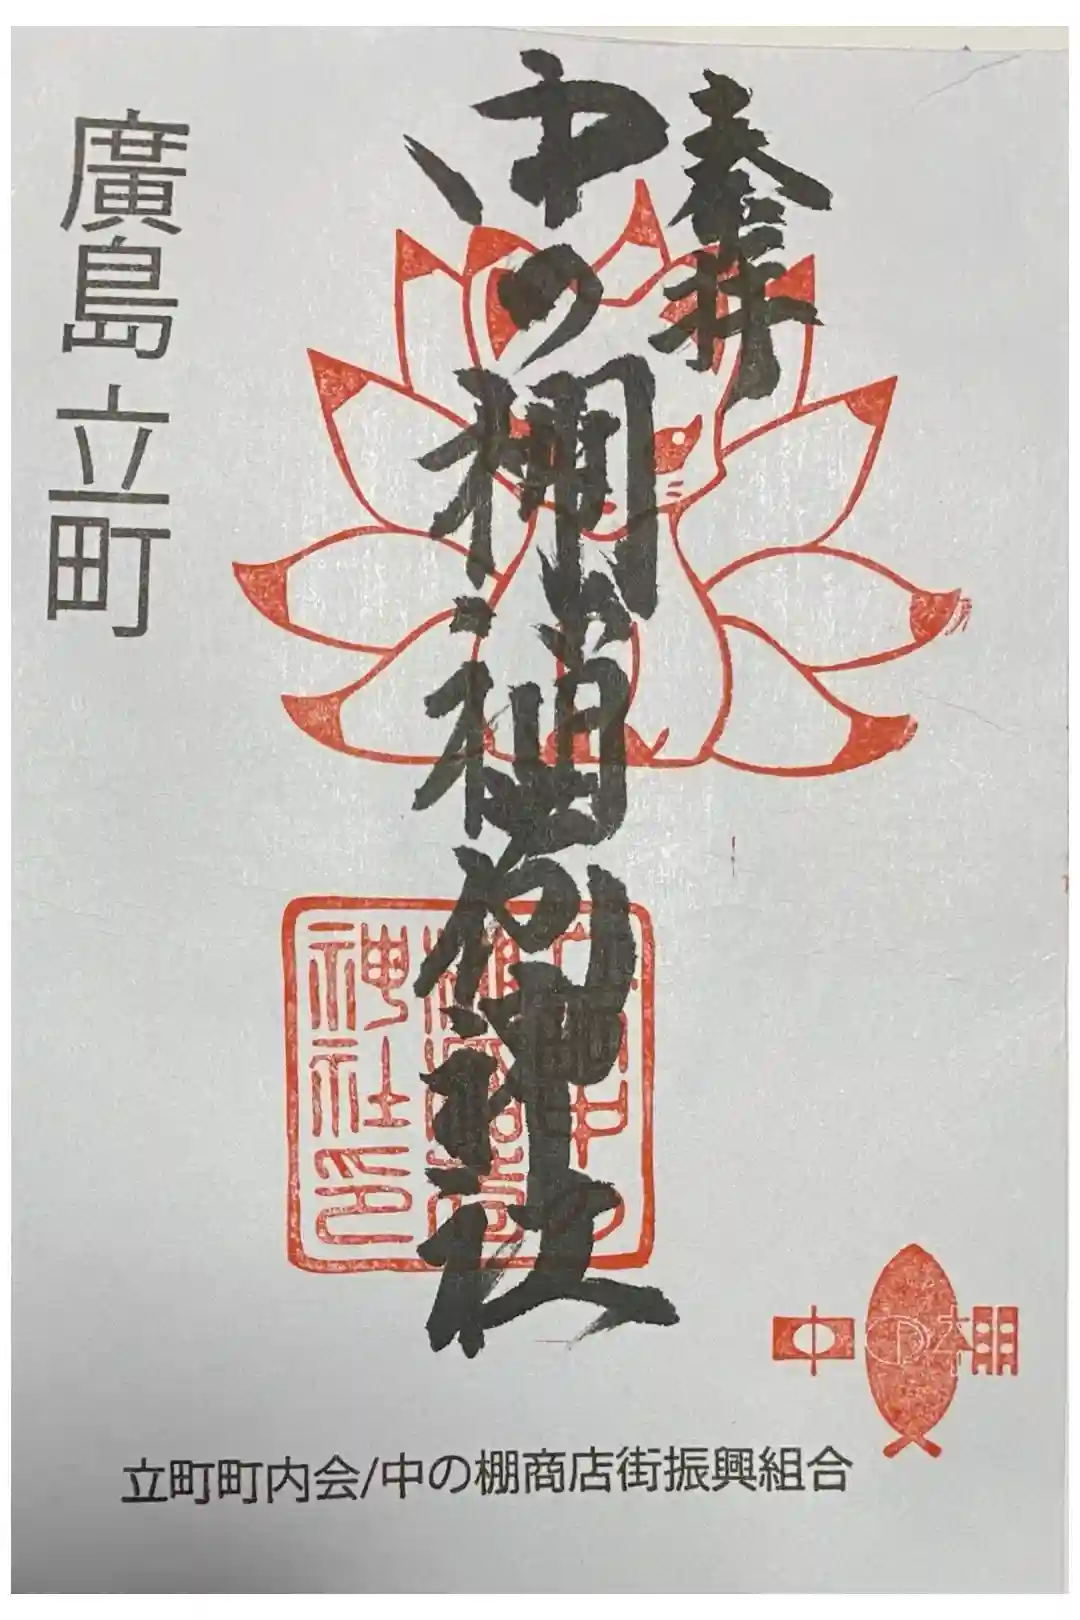 奉拝
中の棚稲荷神社
廣島 立町
中の棚
稲荷
神社印
中の棚
立町町内会/中の棚商店街振興組合